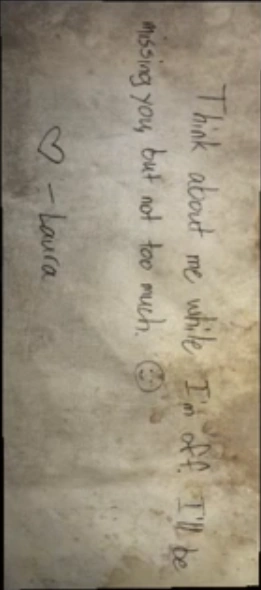 Think about me while I'm off. I'll be
missing you, but not too much. ☺
♡ - Laura